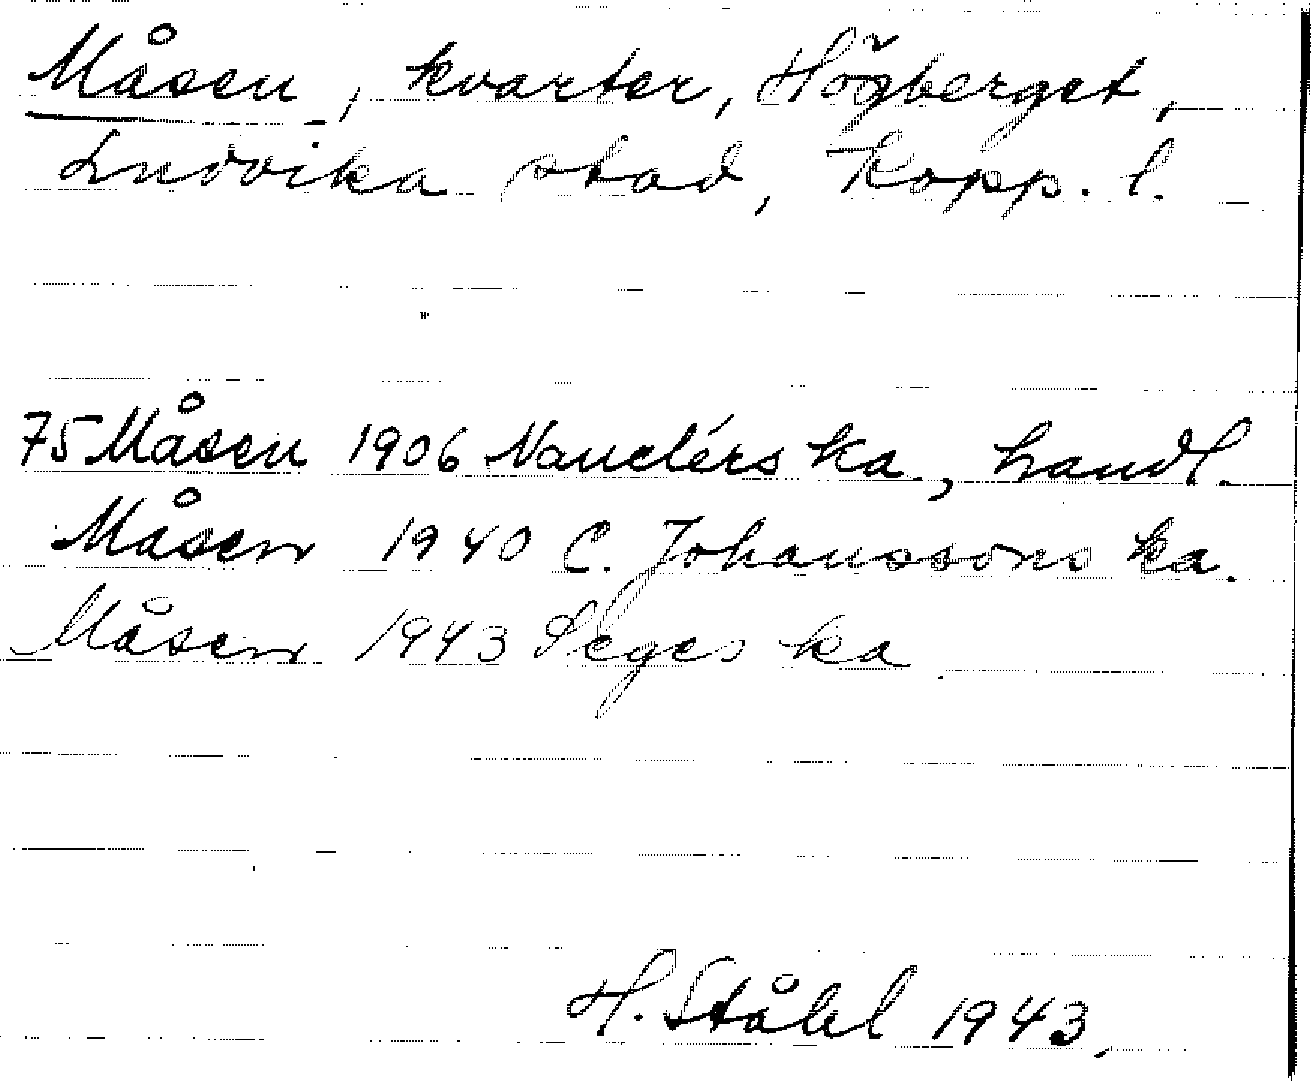 Måsen, kvarter, Högberget,
Ludvika stad, Kopp. l.
75 Måsen 1906 Nauclérs ka, handl.
Måsen 1940 C. Johanssons ka.
Måsen 1943 Seges ka
H. Ståhl 1943.